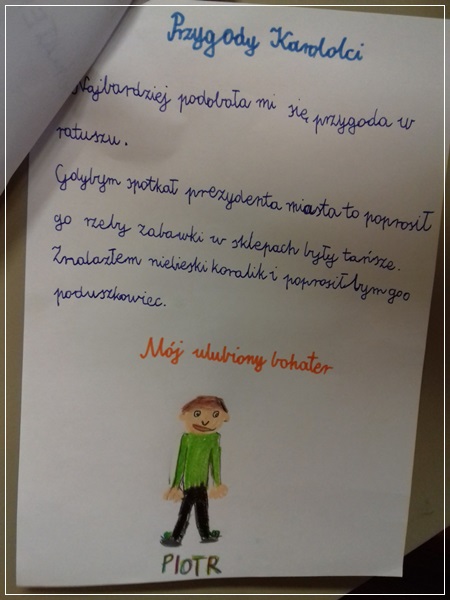 Przygody Karolci
Najbardziej podobała mi się przygoda w
ratuszu.
Gdybym spotkał prezydenta miasta to poprosił
go rzeby zabawki w sklepach były tańsze.
Znalazłem niebieski koralik i poprosił bym go o
poduszkowiec.
Mój ulubiony bohater
PIOTR